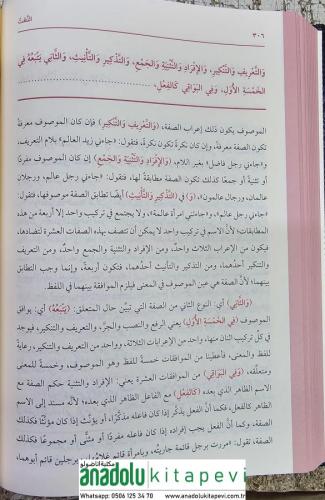 ٣٠٦
النَّعْتُ
وَالتَّعْرِيفِ وَالتَّنْكِيرِ، وَالإِفْرَادِ وَالتَّثْنِيَةِ وَالجَمْعِ، وَالتَّذْكِيرِ وَالتَّأْنِيثِ، وَالثَّانِي يَتْبَعُهُ فِي
الخَمْسَةِ الأُوَلِ، وَفِي البَوَاقِي كَالفِعْلِ.
الموصوف يكون ذلك إعراب الصفة، (وَالتَّعْرِيفِ وَالتَّنْكِيرِ) فإن كان الموصوف معرفةً
تكون الصفة معرفةً، وإن كان نكرةً تكون نكرةً، فتقول: «جاءني زيد العالم» بلام التعريف،
و«جاءني رجل فاضل» بغير اللام، (وَالإِفْرَادِ وَالتَّثْنِيَةِ وَالجَمْعِ) إن كان الموصوف مفردًا
أو تثنية أو جمعًا كذلك تكون الصفة مطابقةً لها، فتقول: «جاءني رجل عالم، ورجلان
عالمان، ورجال عالمون»، (وَ) في (التَّذْكِيرِ وَالتَّأْنِيثِ) أيضًا تطابق الصفة موصوفها، فتقول:
«جاءني رجل عالم»، و«جاءتني امرأة عالمة»، ولا يجتمع في تركيب واحد إلا أربعة من هذه
المطابقات؛ لأن الاسم في تركيب واحد لا يمكن أن تتصف بهذه الصفات العشرة لتضادها،
فيكون من الإعراب الثلاث واحدٌ، ومن الإفراد والتثنية والجمع واحدٌ، ومن التعريف
والتنكير أحدُهما، ومن التذكير والتأنيث أحدُهما، فتكون أربعةً، وإنما وجب التطابق
بينهما لأن الصفة هي عين الموصوف في المعنى فيلزم الموافقة بينهما في اللفظ.
(وَالثَّانِي) أي: النوع الثاني من الصفة التي تبيّن حال المتعلق: (يَتْبَعُهُ) أي: يوافق
الموصوف (فِي الخَمْسَةِ الأُوَلِ) يعني الرفع والنصب والجرّ، والتعريف والتنكير، فيوجد
في كلّ تركيب اثنان منها، واحد من الإعرابات الثلاثة، وواحد من التعريف والتنكير، رعايةً
للفظ والمعنى، فأعطينا من الموافقات خمسةً للفظ وهو الموصوف، وخمسةً للمعنى
ومتعلّقه، (وَفِي البَوَاقِي) من الموافقات العشرة يعني: الإفراد والتثنية حكم الصفة مع
الاسم الظاهر الذي بعده (كَالفِعْلِ) مع الفاعل الظاهر الذي بعده؛ لأنه مسند إلى الاسم
الظاهر كالفعل، فكما أنّ الفعل يذكّر إذا كان فاعله مذكّرًا، أو يؤنّث إذا كان مؤنثًا فكذلك
الصفة، وكما أنّ الفعل يجب إفراده إذا كان فاعله مفردًا أو مثنًى أو مجموعًا فكذلك
الصفة، تقول: مررت برجل قائمة جاريته، وبامرأة قائم غلامُها، وبرجلين قائم أبوهما
مكتبة الأناضولي
anadolukitapevi
Whatsapp: 0506 125 34 70 www.anadolukitapevi.com